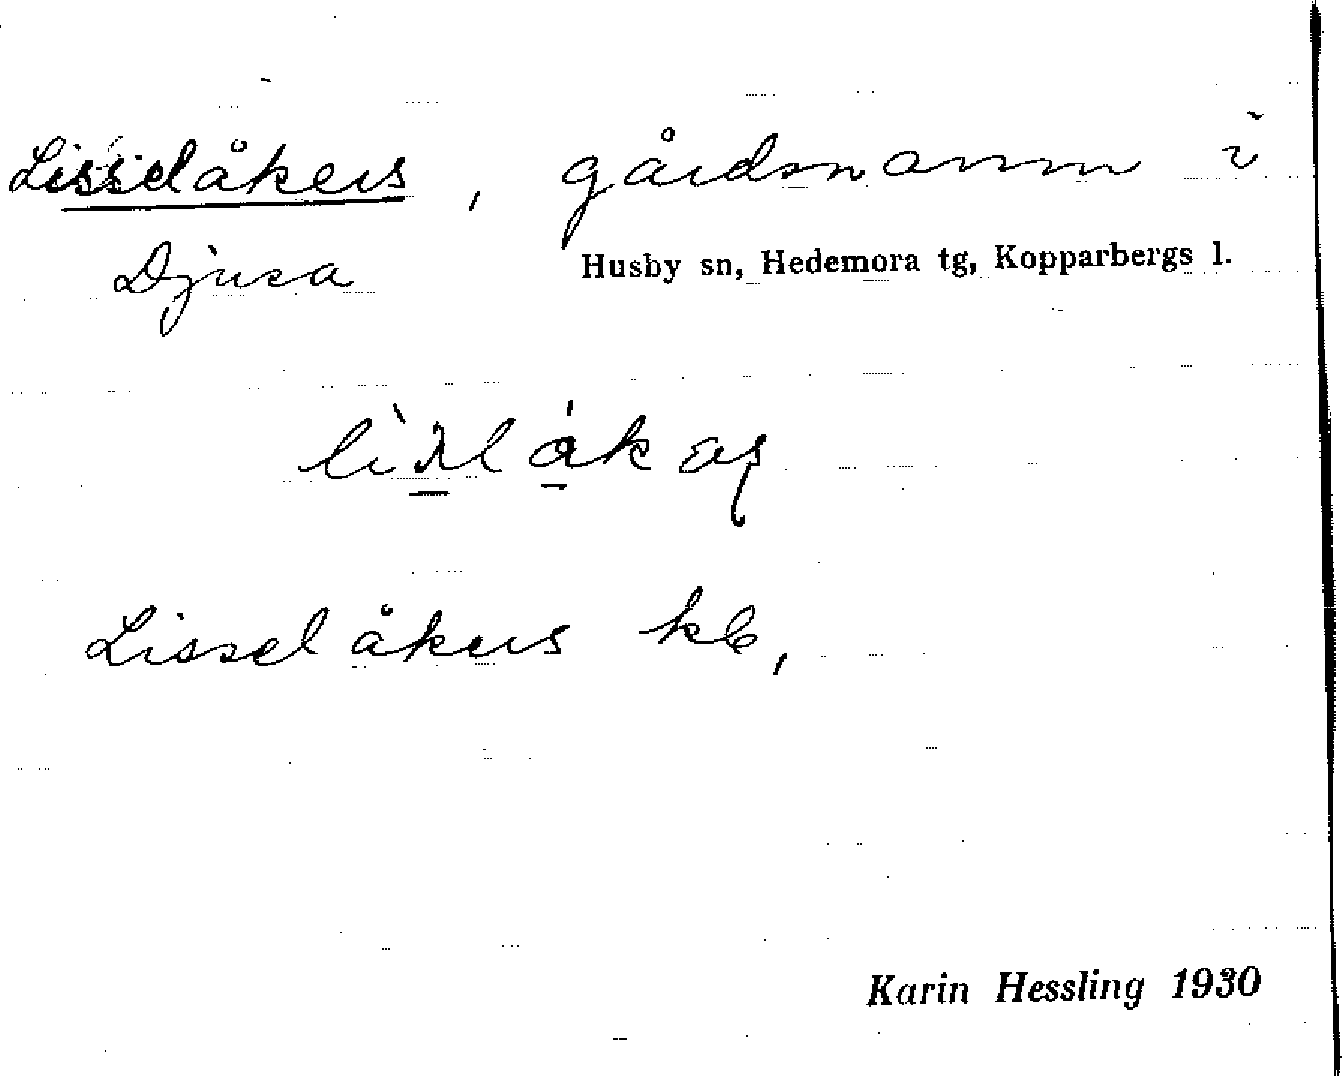 Lisselåkers, gårdsnamn i
Djusa Husby sn, Hedemora tg, Kopparbergs l.
Lisselåkers kb,
Karin Hessling 1930